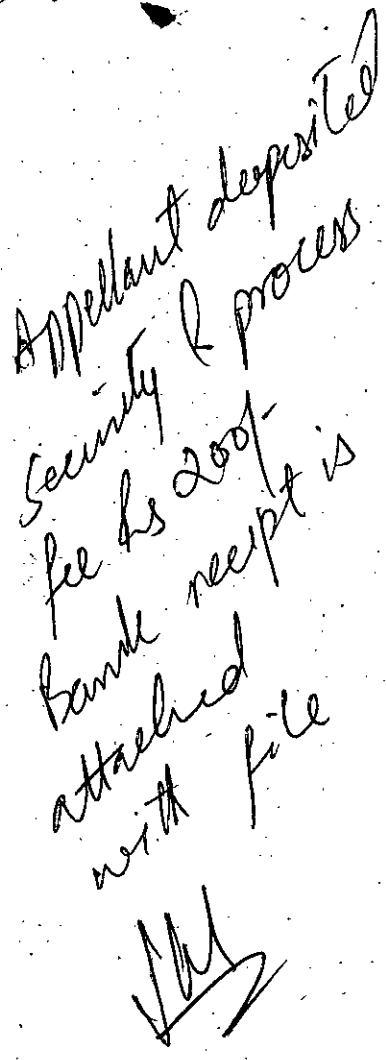 Appellant deposited
Security & process
fee Rs 200/-
Bank receipt is
attached
with file